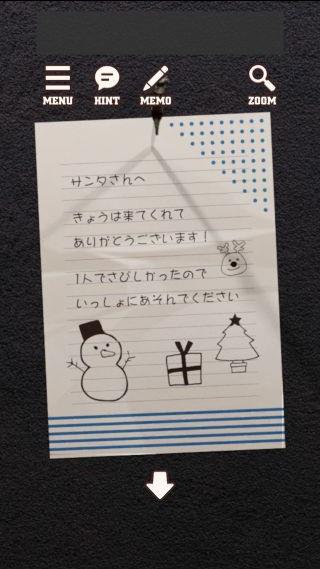 MENU HINT MEMO ZOOM
サンタさんへ
きょうは来てくれて
ありがとうございます！
1人でさびしかったので
いっしょにあそんでください